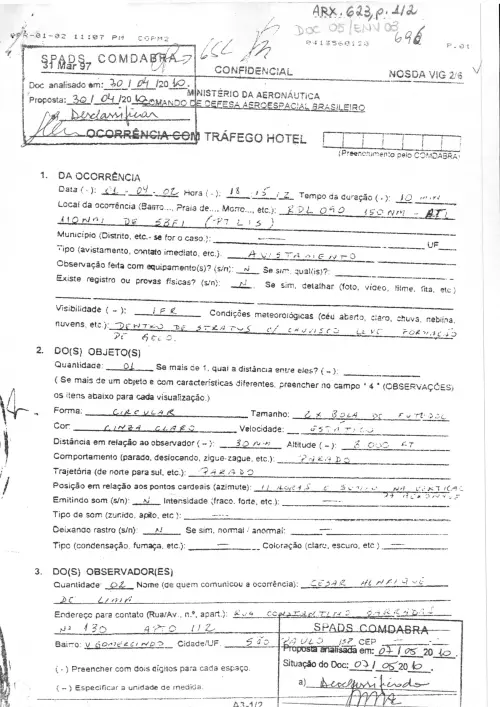 ARX. 623, p. 1/2
DOC 05/ENV 03
-01-02 11:07 PM COPM2
0413560120
P.01
SPADS COMDABRA
31 Mar 97
CONFIDENCIAL
NOSDA VIG 2/6
Doc analisado em: 30 / 04 /20 10.
MINISTÉRIO DA AERONÁUTICA
Proposta: 30 / 04 /20 10.
COMANDO DE DEFESA AEROESPACIAL BRASILEIRO
a) Desclassificar
OCORRÊNCIA COM TRÁFEGO HOTEL
(Preenchimento pelo COMDABRA)
1. DA OCORRÊNCIA
Data (·): 01 - 04 - 02 Hora (·): 18 15 Z Tempo da duração (·): 10 min
Local da ocorrência (Bairro..., Praia de..., Morro..., etc.): RDL 090 150 NM
110 NM DE SBFI
Município (Distrito, etc.- se for o caso.): UF
Tipo (avistamento, contato imediato, etc.): AVISTAMENTO
Observação feita com equipamento(s)? (s/n): N Se sim, qual(is)?:
Existe registro ou provas físicas? (s/n): N Se sim, detalhar (foto, vídeo, filme, fita, etc.)
Visibilidade (~): IFR Condições meteorológicas (céu aberto, claro, chuva, neblina,
nuvens, etc.): DENTRO DE STRATUS C/ CHUVISCO LEVE FORMAÇÃO
DE GELO.
2. DO(S) OBJETO(S)
Quantidade: 01 Se mais de 1, qual a distância entre eles? (~):
( Se mais de um objeto e com características diferentes, preencher no campo " 4 " (OBSERVAÇÕES)
os itens abaixo para cada visualização.)
Forma: CIRCULAR Tamanho: 2 X BOLA DE FUTEBOL
Cor: CINZA CLARO Velocidade: ESTÁTICO
Distância em relação ao observador (~): 30 NM Altitude (~): FT
Comportamento (parado, deslocando, zigue-zague, etc.): PARADO
Trajetória (de norte para sul, etc.): PARADO
Posição em relação aos pontos cardeais (azimute): 11 HORAS E NA VERTICAL
Emitindo som (s/n): N Intensidade (fraco, forte, etc.):
Tipo de som (zunido, apito, etc.):
Deixando rastro (s/n): N Se sim, normal / anormal:
Tipo (condensação, fumaça, etc.): Coloração (claro, escuro, etc.)
3. DO(S) OBSERVADOR(ES)
Quantidade: 02 Nome (de quem comunicou a ocorrência): CESAR HENRIQUE
DE LIMA
Endereço para contato (Rua/Av., n.º, apart.): RUA CONSTANTINO
Nº 130 APTO 112
SPADS COMDABRA
Bairro: V GOMERCINDO Cidade/UF SÃO PAULO /SP CEP
Proposta analisada em: 07 / 05 20 10
(·) Preencher com dois dígitos para cada espaço.
Situação do Doc: 07 / 05 20 10
(~) Especificar a unidade de medida.
a) Desclassificado
A3-1/2